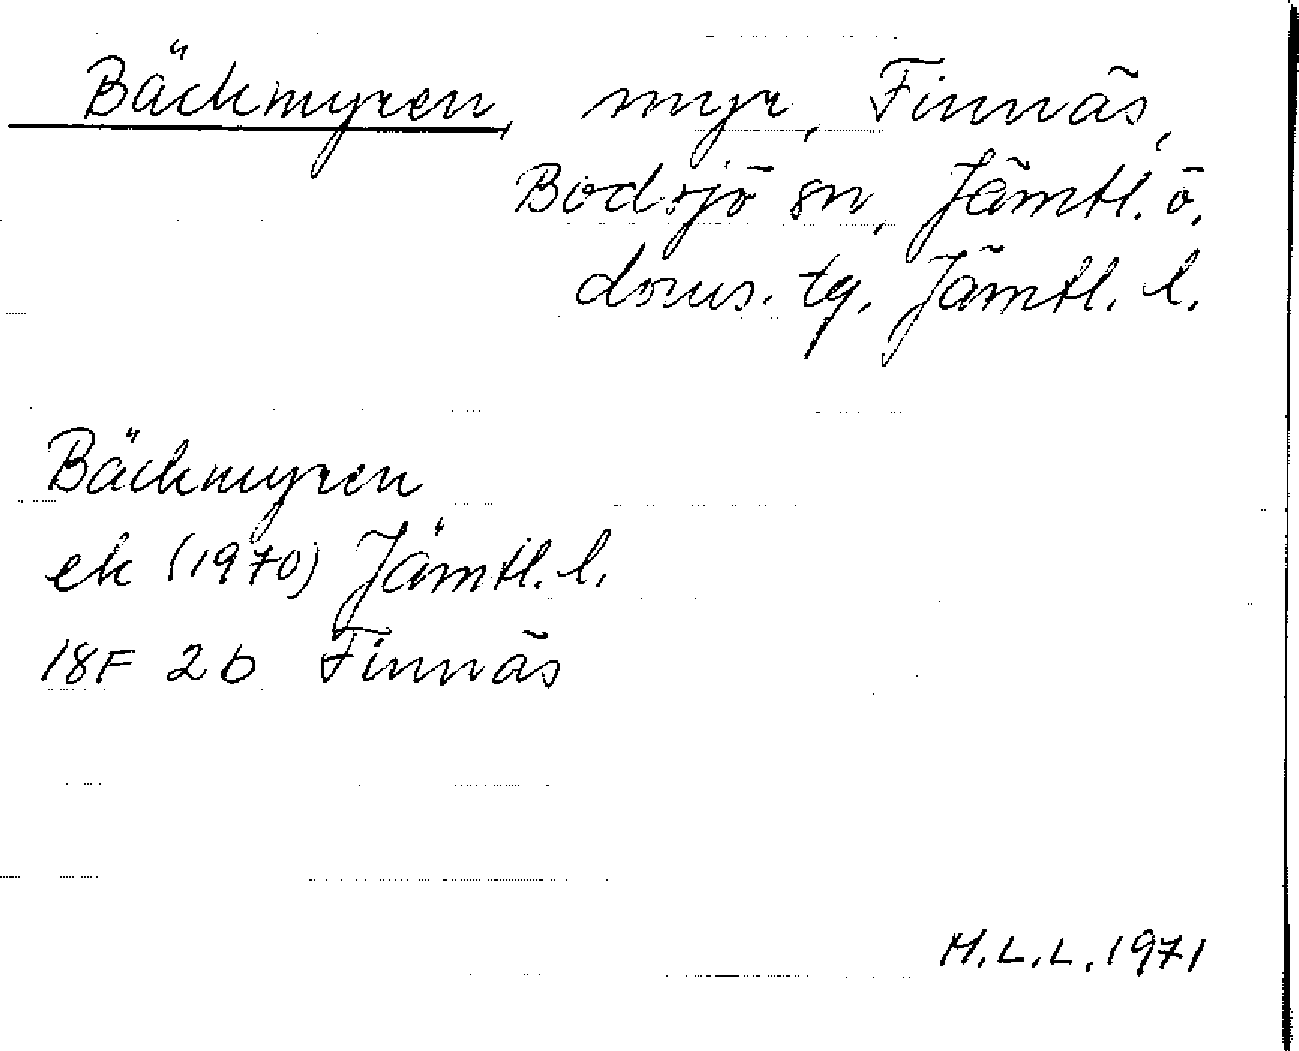 Bäckmyren, myr, Finnäs,
Bodsjö sn, Jämtl. ö.
doms. tg, Jämtl. l.
Bäckmyren
ek (1970) Jämtl. l.
18F 2b Finnäs
M.L.L. 1971